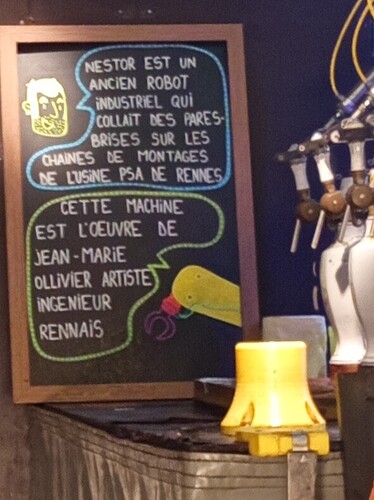 NESTOR EST UN
ANCIEN ROBOT
INDUSTRIEL QUI
COLLAIT DES PARES-
BRISES SUR LES
CHAINES DE MONTAGES
DE L'USINE PSA DE RENNES
CETTE MACHINE
EST L'OEUVRE DE
JEAN-MARIE
OLLIVIER ARTISTE
INGENIEUR
RENNAIS